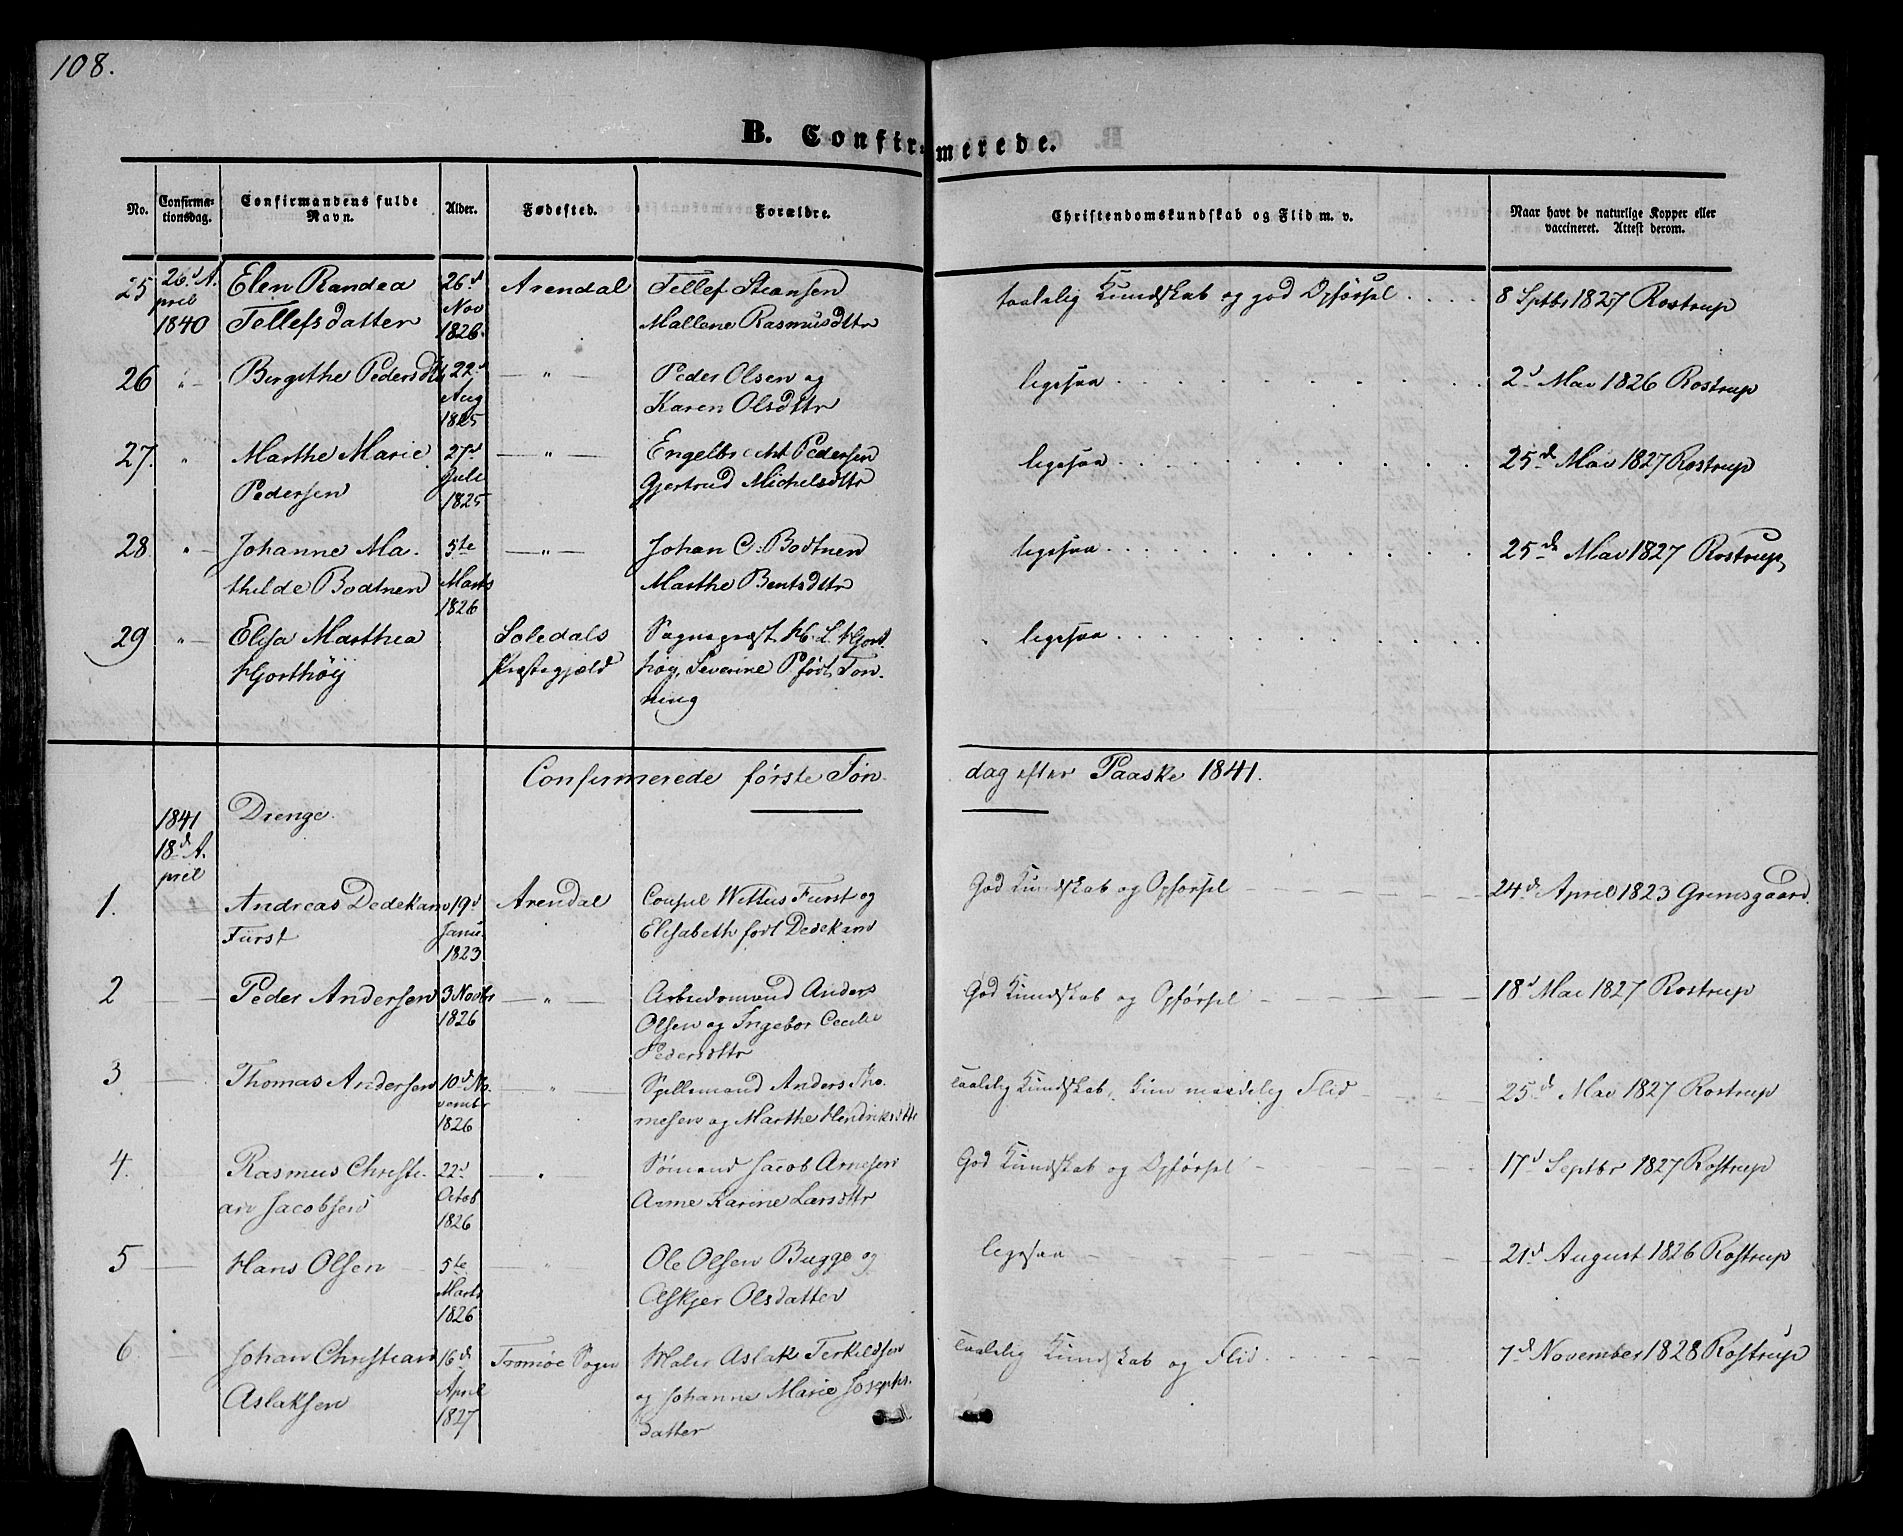 108.
B. Confirmerede.
No. Confirmationsdag. Confirmandens fulde Navn. Alder. Fødested. Forældre. Christendomskundskab og Flid m. v. Naar havt de naturlige Kopper eller vaccineret. Attest derom.
25 26d A. Elen Randea 26d Arendal Tellef Steansen taalelig Kundskab og god Opførsel . . . . 8 Septbr 1827 Rostrup
pril Nov
1840 Tellefsdatter 1826. Mallene Rasmusdttr
26 " Birgithe Pedersdtr 22d — " — Peder Olsen og ligesaa . . . . 2d Mai 1826 Rostrup
Aug Karen Olsdttr
1825
27. " Marthe Marie 27d — " — Engelbrecht Pedersen ligesaa . . . . 25de Mai 1827 Rostrup
Pedersen Juli Gjertrud Michelsdttr
1825
28 " Johanne Ma- 5te — " — Johan C. Bodtnen ligesaa . . . . 25de Mai 1827 Rostrup
thilde Bodtnen Marts Marthe Bentsdttr
1826
29 " Elisa Marthea Soledals Sognepræst H. L. Hjort- ligesaa . . . .
Hjorthöy Præstegjeld høy, Severine P født Ton-
ning
Confirmerede første Søn- dag efter Paaske 1841.
1841 Drenge
18d A.
pril
1. Andreas Dedekam 19d Arendal Consul Wettus Fürst og God Kundskab og Opførsel — 24de April 1823 Grimsgaard
Fürst Janu. Elisabeth født Dedekam
1823
2 — Peder Andersen 3 Novbr — " — Arbeidsmand Anders God Kundskab og Opførsel — 18d Mai 1827 Rostrup
1826 Olsen og Ingebor Cecilie
Pedersdttr
3 — Thomas Andersen 10d No- — " — Spillemand Anders Tho- Taalelig Kundskab, kun maadelig Flid — 25d Mai 1827 Rostrup
vembr mesen og Marthe Hendriksdttr
1826
4. — Rasmus Christi- 22d " Sømand Jacob Arnesen God Kundskab og Opførsel — 17d Septbr 1827 Rostrup
an Jacobsen Octob Anne Karine Larsdttr
1826
5 — Hans Olsen 5te " Ole Olsen Bugge og ligesaa — 21d August 1826 Rostrup
Marts Askjer Olsdatter
1826
6. Johan Christian 16d Tromøe Sogn Maler Aslak Terkildsen Taalelig Kundskab og Flid. — 7d November 1828 Rostrup
Aslaksen April og Johanne Marie Josephs-
1827 datter